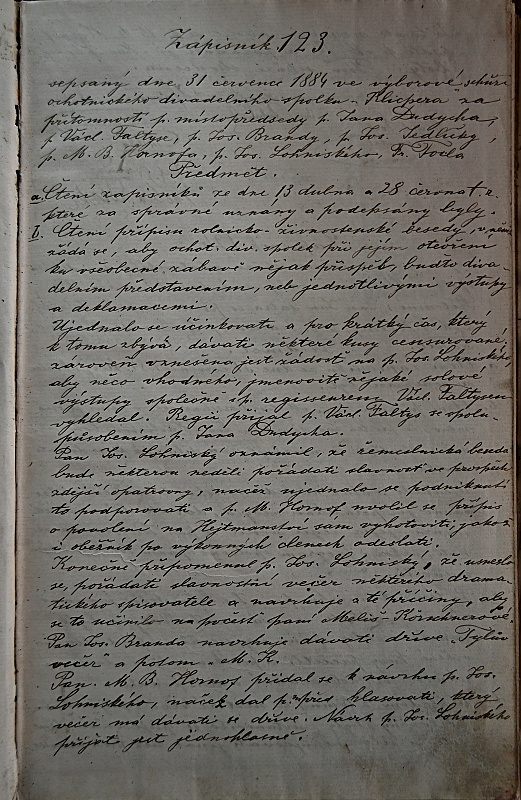 Zápisník 123.
sepsaný dne 31 července 1884 ve výborové schůzi
ochotnického divadelního spolku „Klicpera" za
přítomnosti p. místopředsedy p. Jana Dudycha,
p. Václ. Faltyse, p. Jos. Brandy, p. Jos. Jedličky,
p. M. B. Hornofa, p. Jos. Lohniského, Fr. Fodla
Předmět.
a. Čtení zápisníků ze dne 13 dubna a 28 června t. r.
které za správné uznány a podepsány byly.
b. Čtení přípisu rolnicko-živnostenské besedy, v němž
žádá se, aby ochot. div. spolek při jejím otevření
ku všeobecné zábavě nějak přispěl, buďto diva-
delním představením, neb jednotlivými výstupy
a deklamacemi.
Ujednalo se účinkovati a pro krátký čas, který
k tomu zbývá, dávati některé kusy censurované;
zároveň vznešena jest žádost na p. Jos. Lohniského,
aby něco vhodného, jmenovitě nějaké solové
výstupy společně s p. regisseurem Václ. Faltysem
vyhledal. Regii přijal p. Václ. Faltys se spolu-
působením p. Jana Dudycha.
Pan Jos. Lohniský oznámil, že řemeslnická beseda
bude některou neděli pořádati slavnost ve prospěch
zdejší opatrovny, načež ujednalo se podniknutí
to podporovati a p. M. Hornof uvolil se přípis
o povolení na Hejtmanství sám vyhotoviti, jakož
i oběžník po výkonných členech odeslati.
Konečně připomenul p. Jos. Lohniský, že usneslo
se, pořádati slavnostní večer některého drama-
tického spisovatele a navrhuje z té příčiny, aby
se to učinilo na počest paní Meliš-Körschnerové.
Pan Jos. Branda navrhuje dávati dříve „Tylův
večer" a potom „M. K.
Pan. M. B. Hornof přidal se k návrhu p. Jos.
Lohniského, načež dal p. před. hlasovati, který
večer má dávati se dříve. Návrh p. Jos. Lohniského
přijat jest jednohlasně.